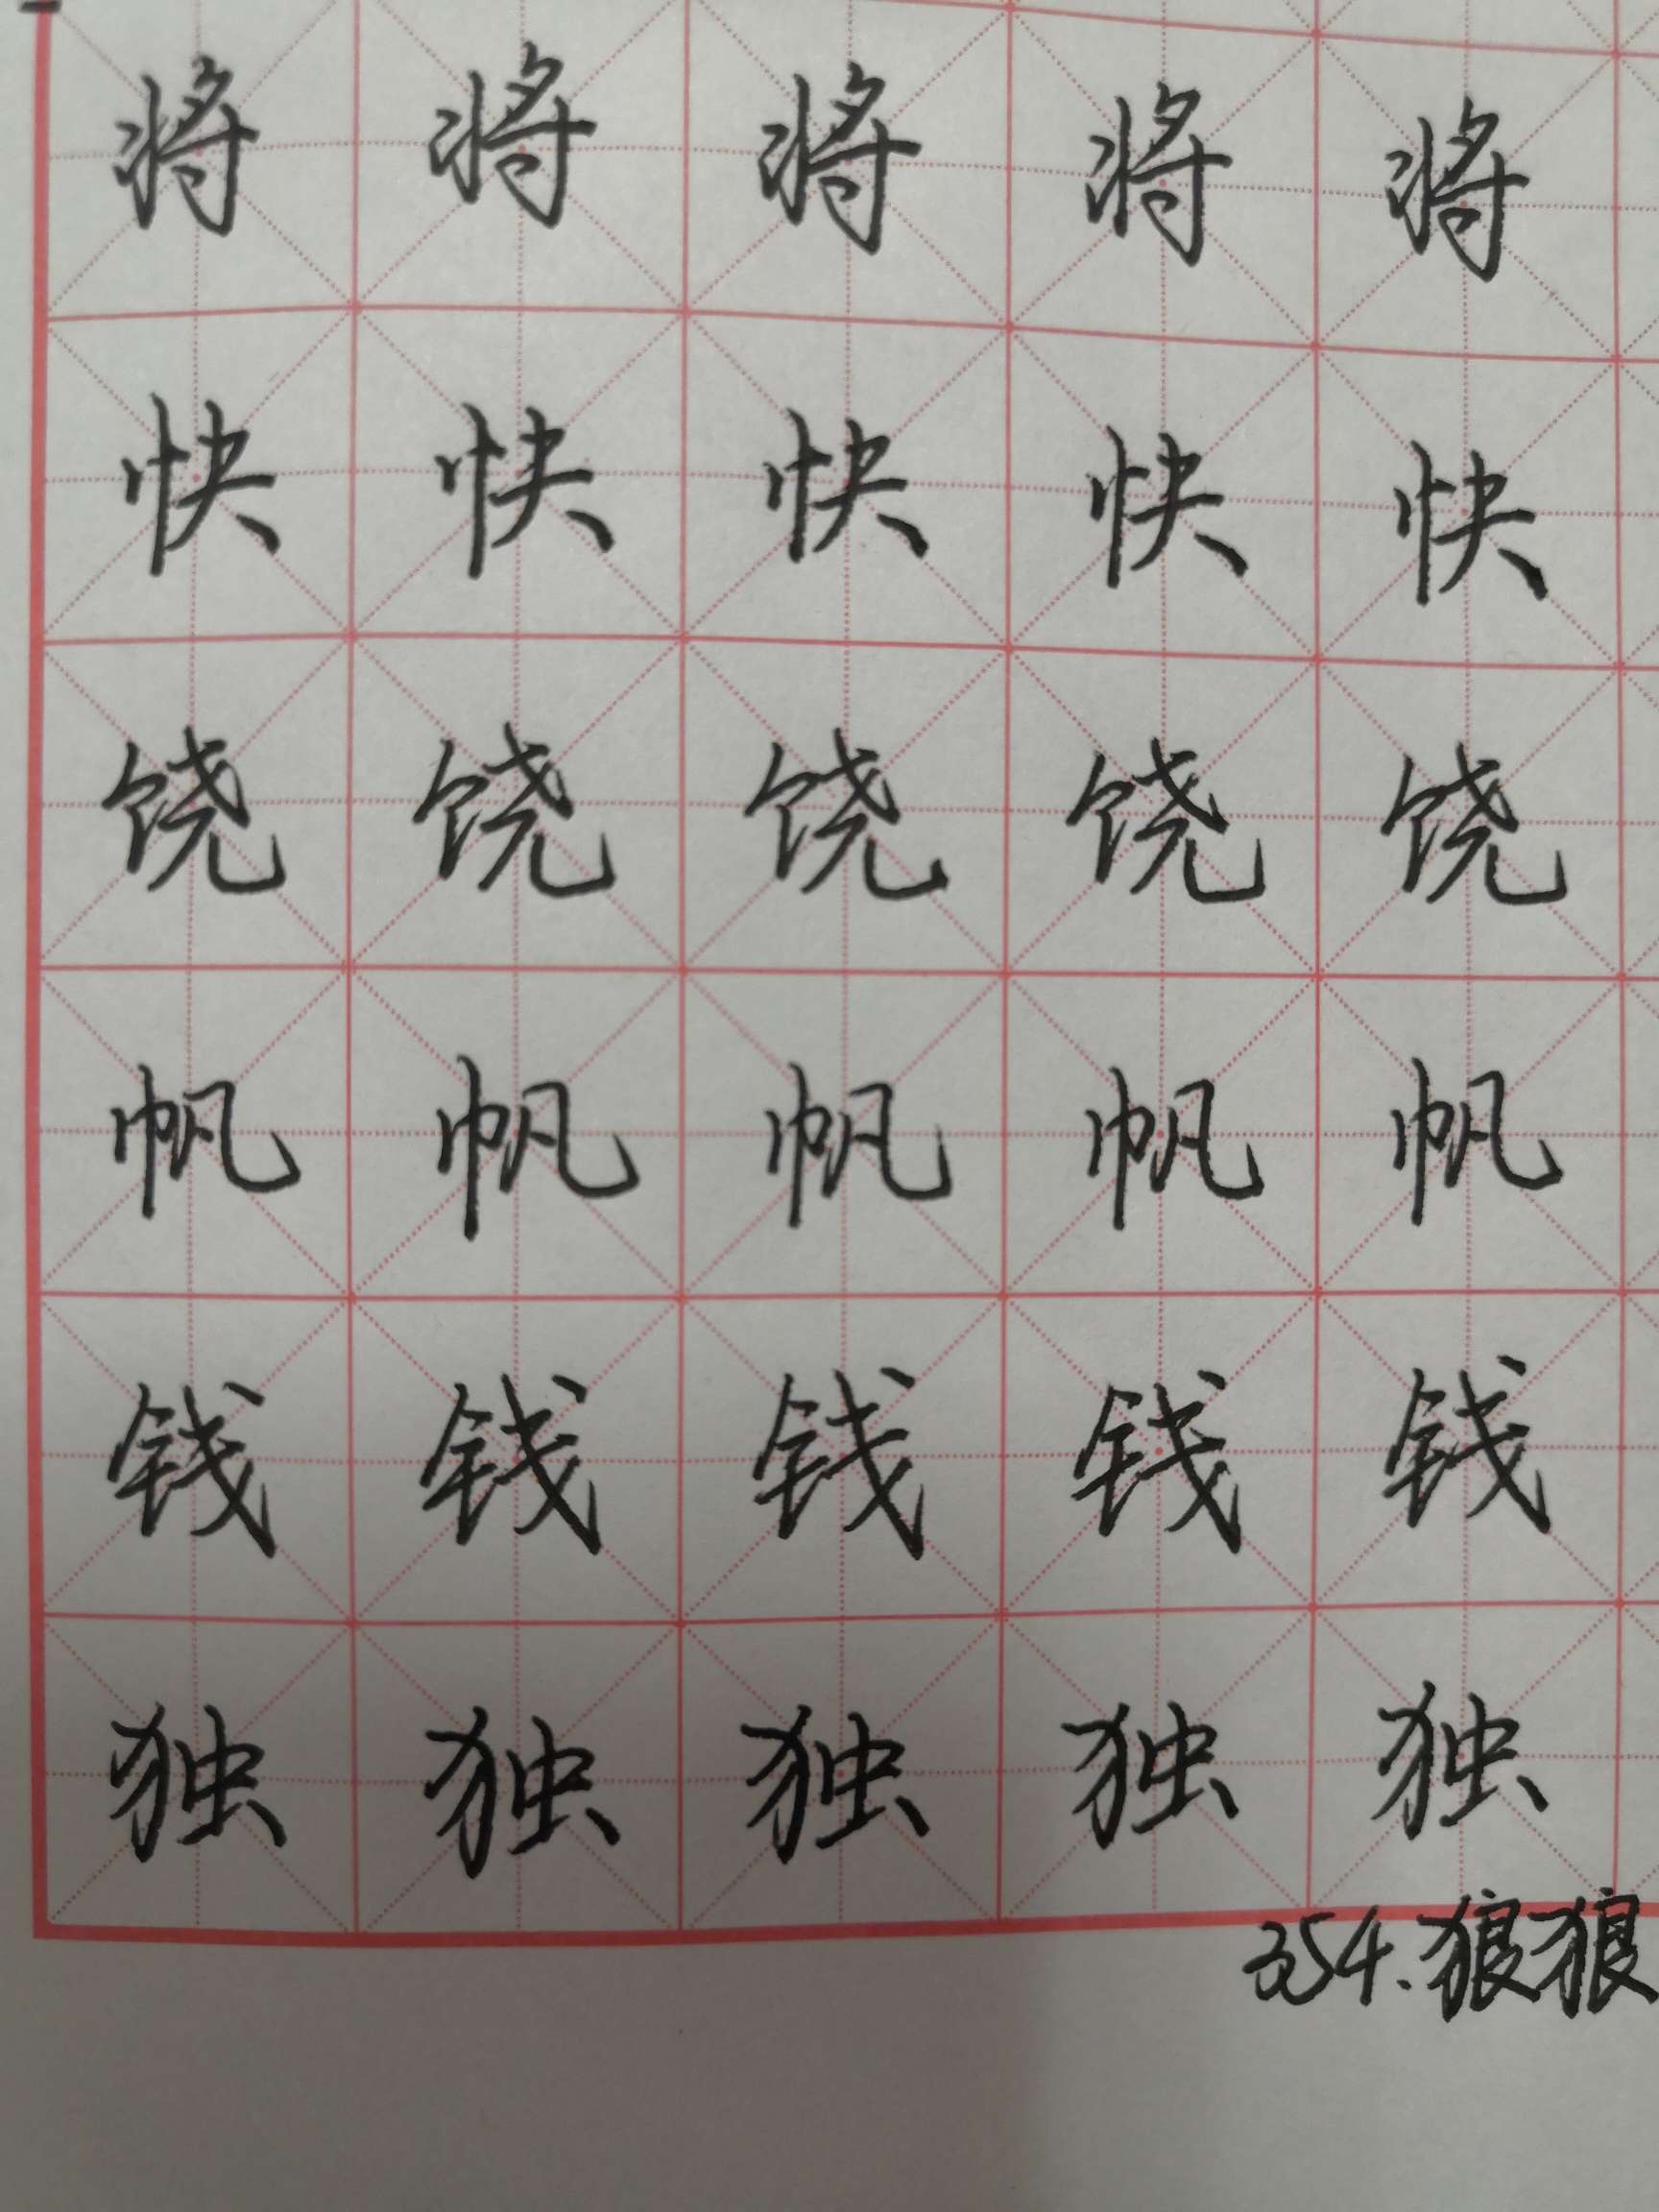 将将将将将
快快快快快
饶饶饶饶饶
帆帆帆帆帆
钱钱钱钱钱
独独独独独
354.狼狼